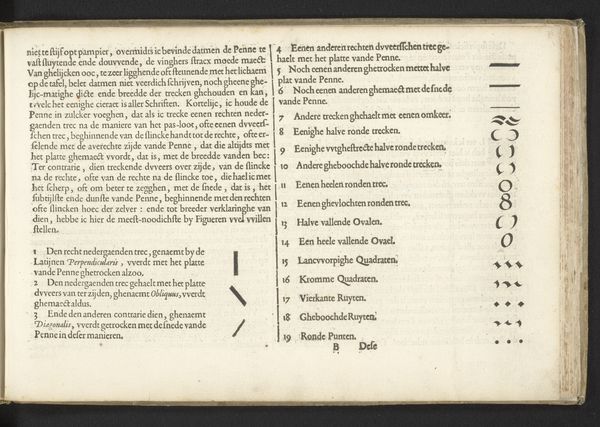 niet te stijf opt pampier, overmidts ic bevinde datmen de Penne te
vast sluytende ende douvvende, de vinghers stracx moede maect:
Van ghelijcken ooc, te zeer ligghende oft steunende met het lichaem
op de tafel, belet datmen niet veerdich schrijven, noch gheene ghe-
lijc-matighe dicte ende breedde der trecken ghehouden en kan,
t'vvelc het eenighe cieraet is aller Schriften. Kortelijc, ic houde de
Penne in zulcker voeghen, dat als ic trecke eenen rechten neder-
gaenden trec na de maniere van het pas-loot, ofte eenen dvveers-
schen trec, beghinnende van de slincke handt tot de rechte, ofte er-
selende met de averechte zijde vande Penne, dat die altijdts met
het platte ghemaect vvordt, dat is, met de breedde vanden bec:
Ter contrarie, dien treckende dvveers over zijde, van de slincke
na de rechte, ofte van de rechte na de slincke toe, die hael ic met
het scherp, oft om beter te zegghen, met de snede, dat is, het
subtijlste ende dunste vande Penne, beghinnende met den rechten
ofte slincken hoec der zelver: ende tot breeder verklaringhe van
dien, hebbe ic hier de meest-noodichste by Figueren vvel vvillen
stellen.
1 Den recht nedergaenden trec, genaemt by de
Latijnen Perpendicularis, vverdt met het platte
vande Penne ghetrocken alzoo.
2 Den nedergaenden trec gehaelt met het platte
dvveers van ter zijden, ghenaemt Obliquus, vverdt
ghemaect aldus.
3 Ende den anderen contrarie dien, ghenaemt
Diagonalis, vverdt getrocken met de snede vande
Penne in deser manieren.
4 Eenen anderen rechten dvveersschen trec ge-
haelt met het platte vande Penne.
5 Noch eenen anderen ghetrocken mettet halve
plat vande Penne.
6 Noch eenen anderen ghemaect met de snede
vande Penne.
7 Andere trecken ghehaelt met eenen omkeer.
8 Eenighe halve ronde trecken.
9 Eenighe vvtghestrecte halve ronde trecken.
10 Andere gheboochde halve ronde trecken.
11 Eenen heelen ronden trec.
12 Eenen ghevlochten ronden trec.
13 Halve vallende Ovalen.
14 Een heele vallende Ovael.
15 Lancvvorpighe Quadraten.
16 Kromme Quadraten.
17 Vierkante Ruyten.
18 Gheboochde Ruyten.
19 Ronde Punten.
B Dese